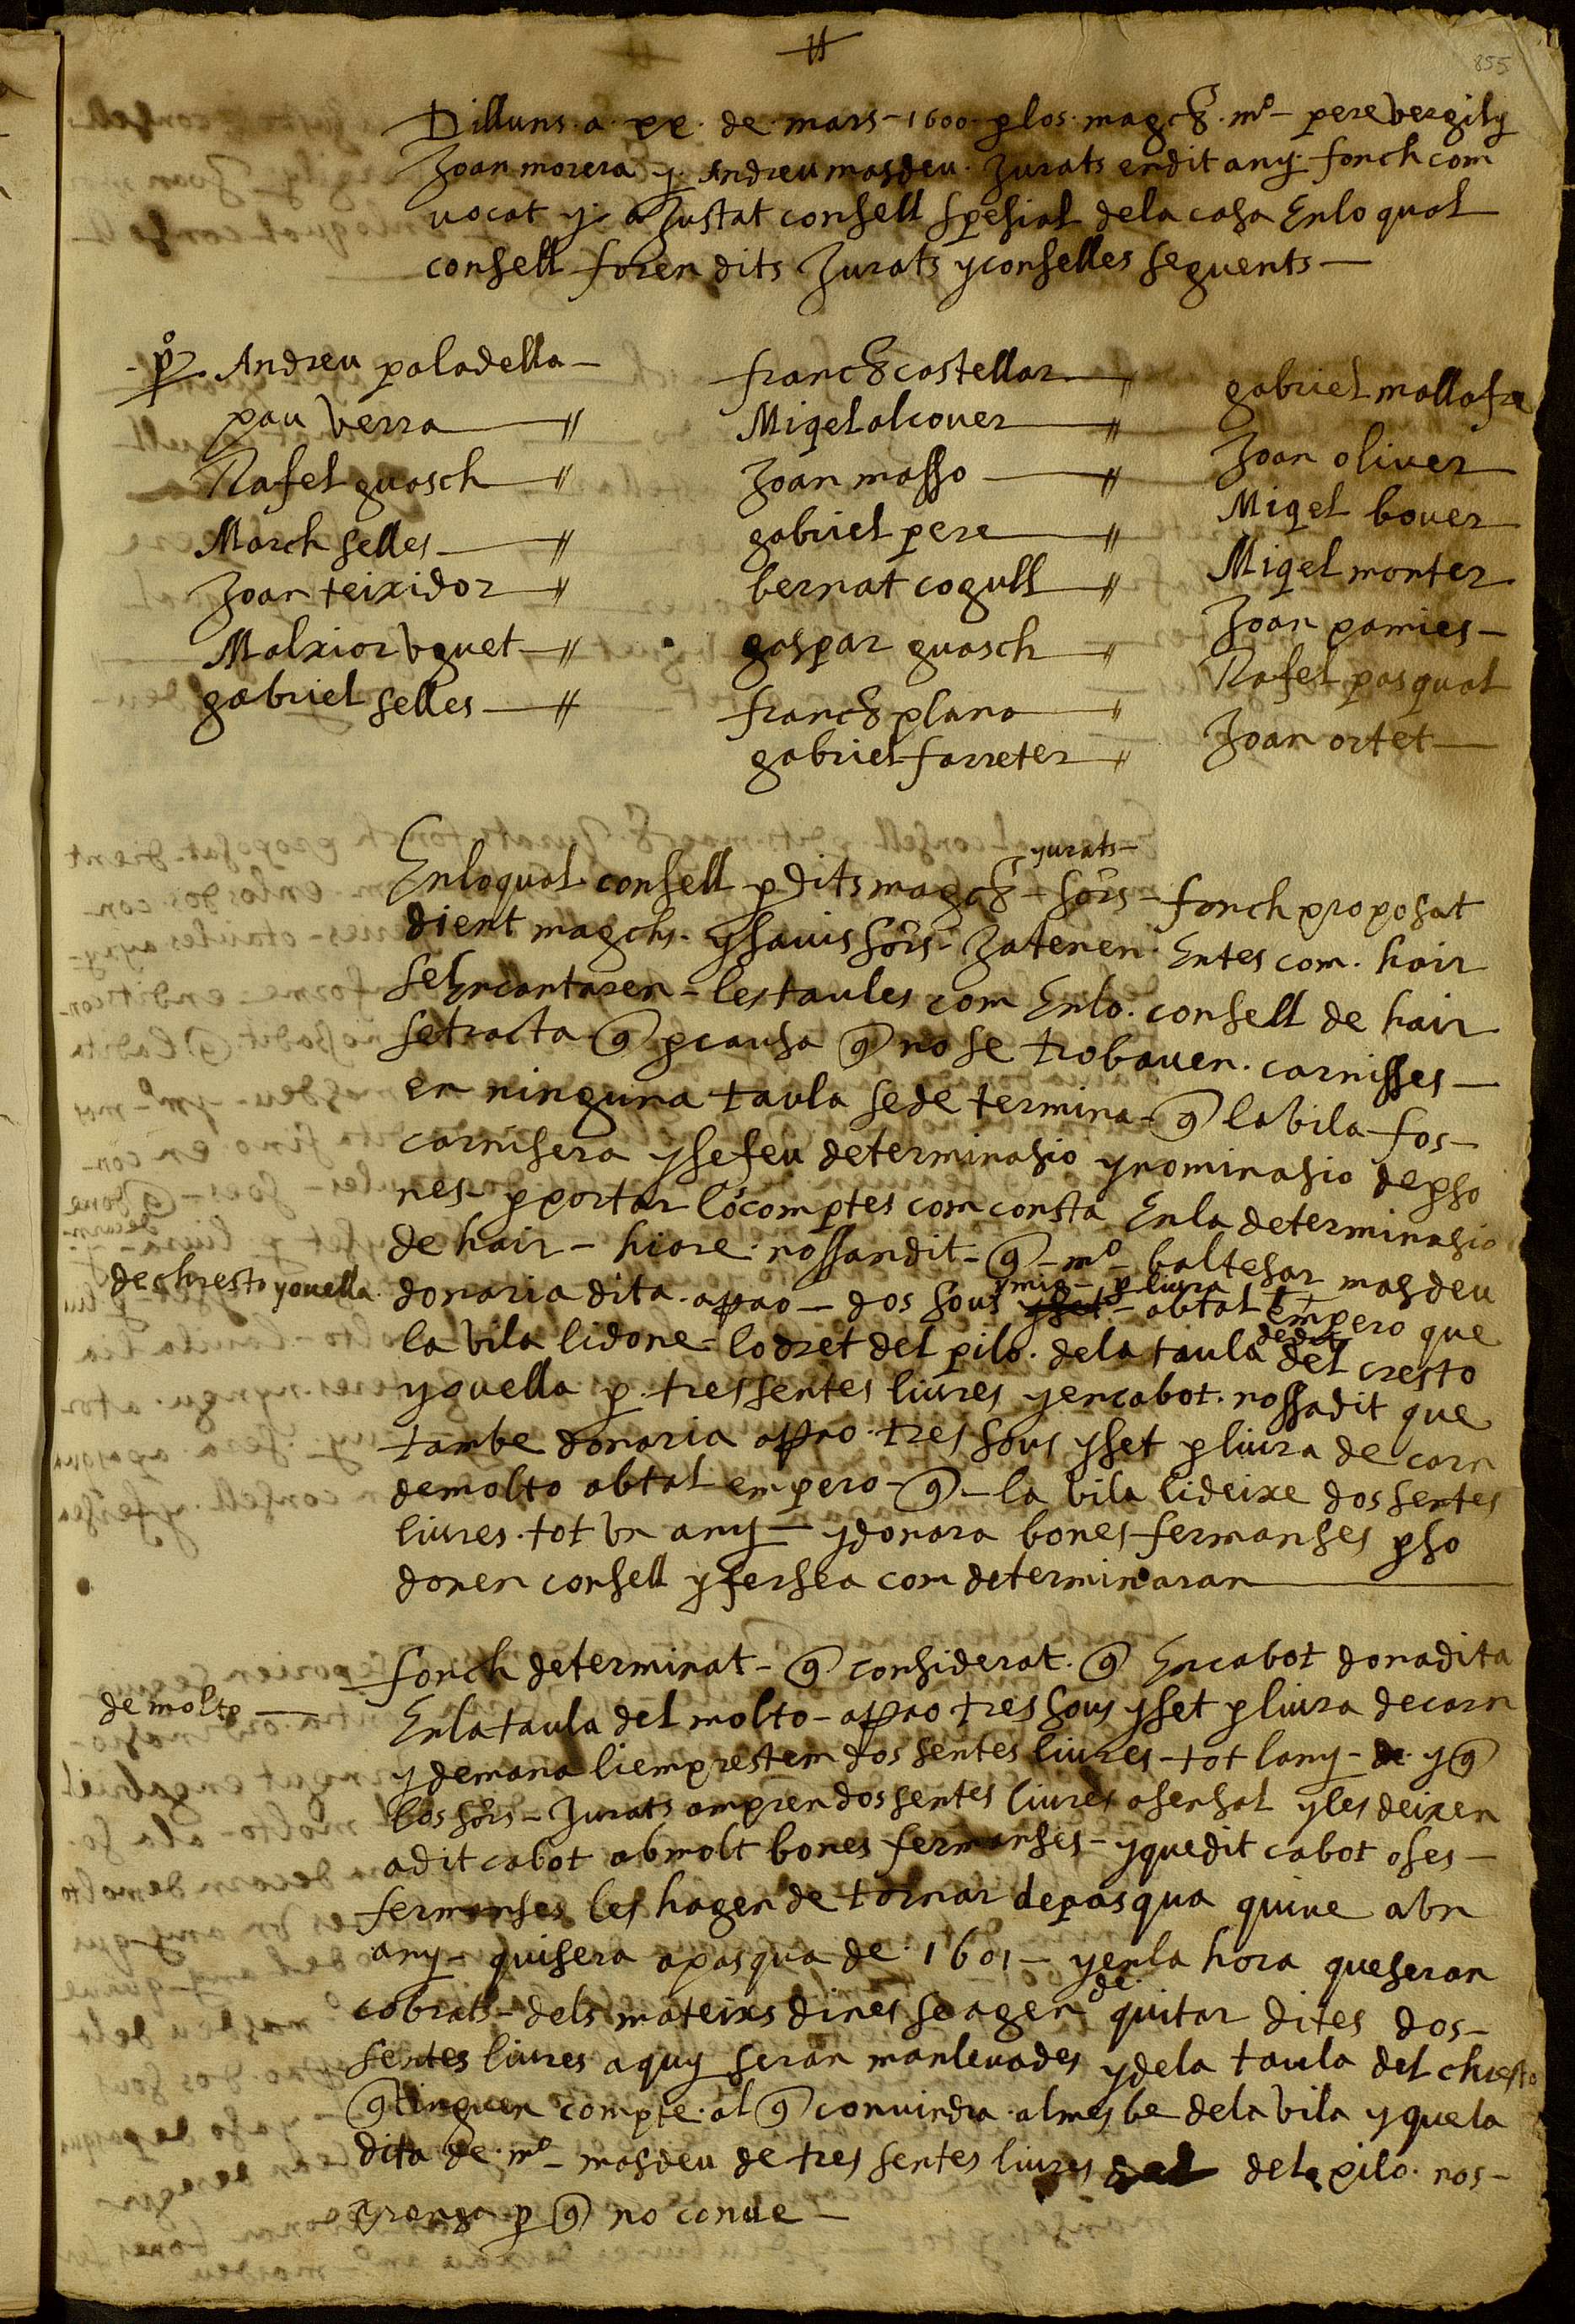 855
Dilluns a pr. de mars 1600 p los magchs. mº pere vergily
Joan morera y Andreu masdeu Jurats en dit any fonch com
vocat y aJustat consell spesial dela casa Enlo qual
consell foren dits Jurats y conselles seguents
pº Andreu paladella
pau verra
Rafel guasch
March selles
Joan teixidor
Malxior vguet
gabriel selles
franch castellar
Miqel alcover
Joan masso
gabriel pere
bernat cogull
gaspar guasch
franch plana
gabriel farreter
gabriel mallafre
Joan oliver
Miqel bover
Miqel monter
Joan pamies
Rafel pasqual
Joan ortet
yurats
Enloqual consell p dits magchs sors fonch proposat
dient magchs. y savis sors Ja tenen Entes com hair
se Encantaren les taules com Enlo consell de hair
se tracta q p causa q no se trobaven carnisses
en ninguna taula se de termina q la vila fos
carnisera y se feu determinasio y nominasio de pso
nes p portar los comptes com consta Enla determinasio
de hair hi are nossan dit q mº baltesar masdeu
de chresto y ovella
donaria dita a ffrao dos sous ymig p liura ab tal Empero que
la vila li done lo dret del pilo dela taula dedit del cresto
y ovella p tres sentes liures y en cabot nossa dit que
tambe donaria affrao tres sous y set p liura de carn
de molto ab tal empero q la vila li deixe dos sentes
liures tot vn any y donara bones fermanses p so
donen consell y fersea com determinaran
fonch determinat q considerat q En cabot dona dita
de molto
Enla taula del molto affrao tres sous y set p liura de carn
y demana li emprestem dos sentes liures tot lany y q
los sors Jurats anpren dos sentes liures asensal y les deixen
a dit cabot ab molt bones fermanses y que dit cabot o ses
fermanses les hagen de tornar de pasqua quive a vn
any qui sera a pasqua de 1601 y en la hora que seran
cobrats dels mateixs dines se agen de quitar dites dos
sentes liures a quy seran manlevades y dela taula del chresto
q tinguen compte al q convindra al mes be dela vila y que la
dita de mº masdeu de tres sentes liures del pilo nos
prenga p q no conve